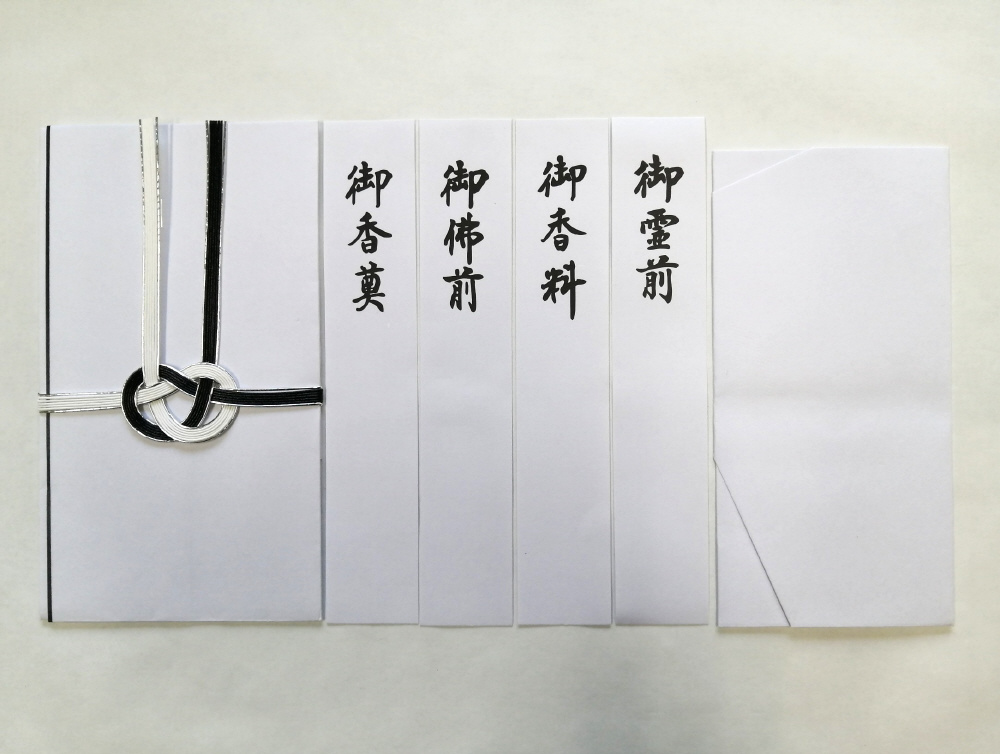 御香奠
御佛前
御香料
御霊前